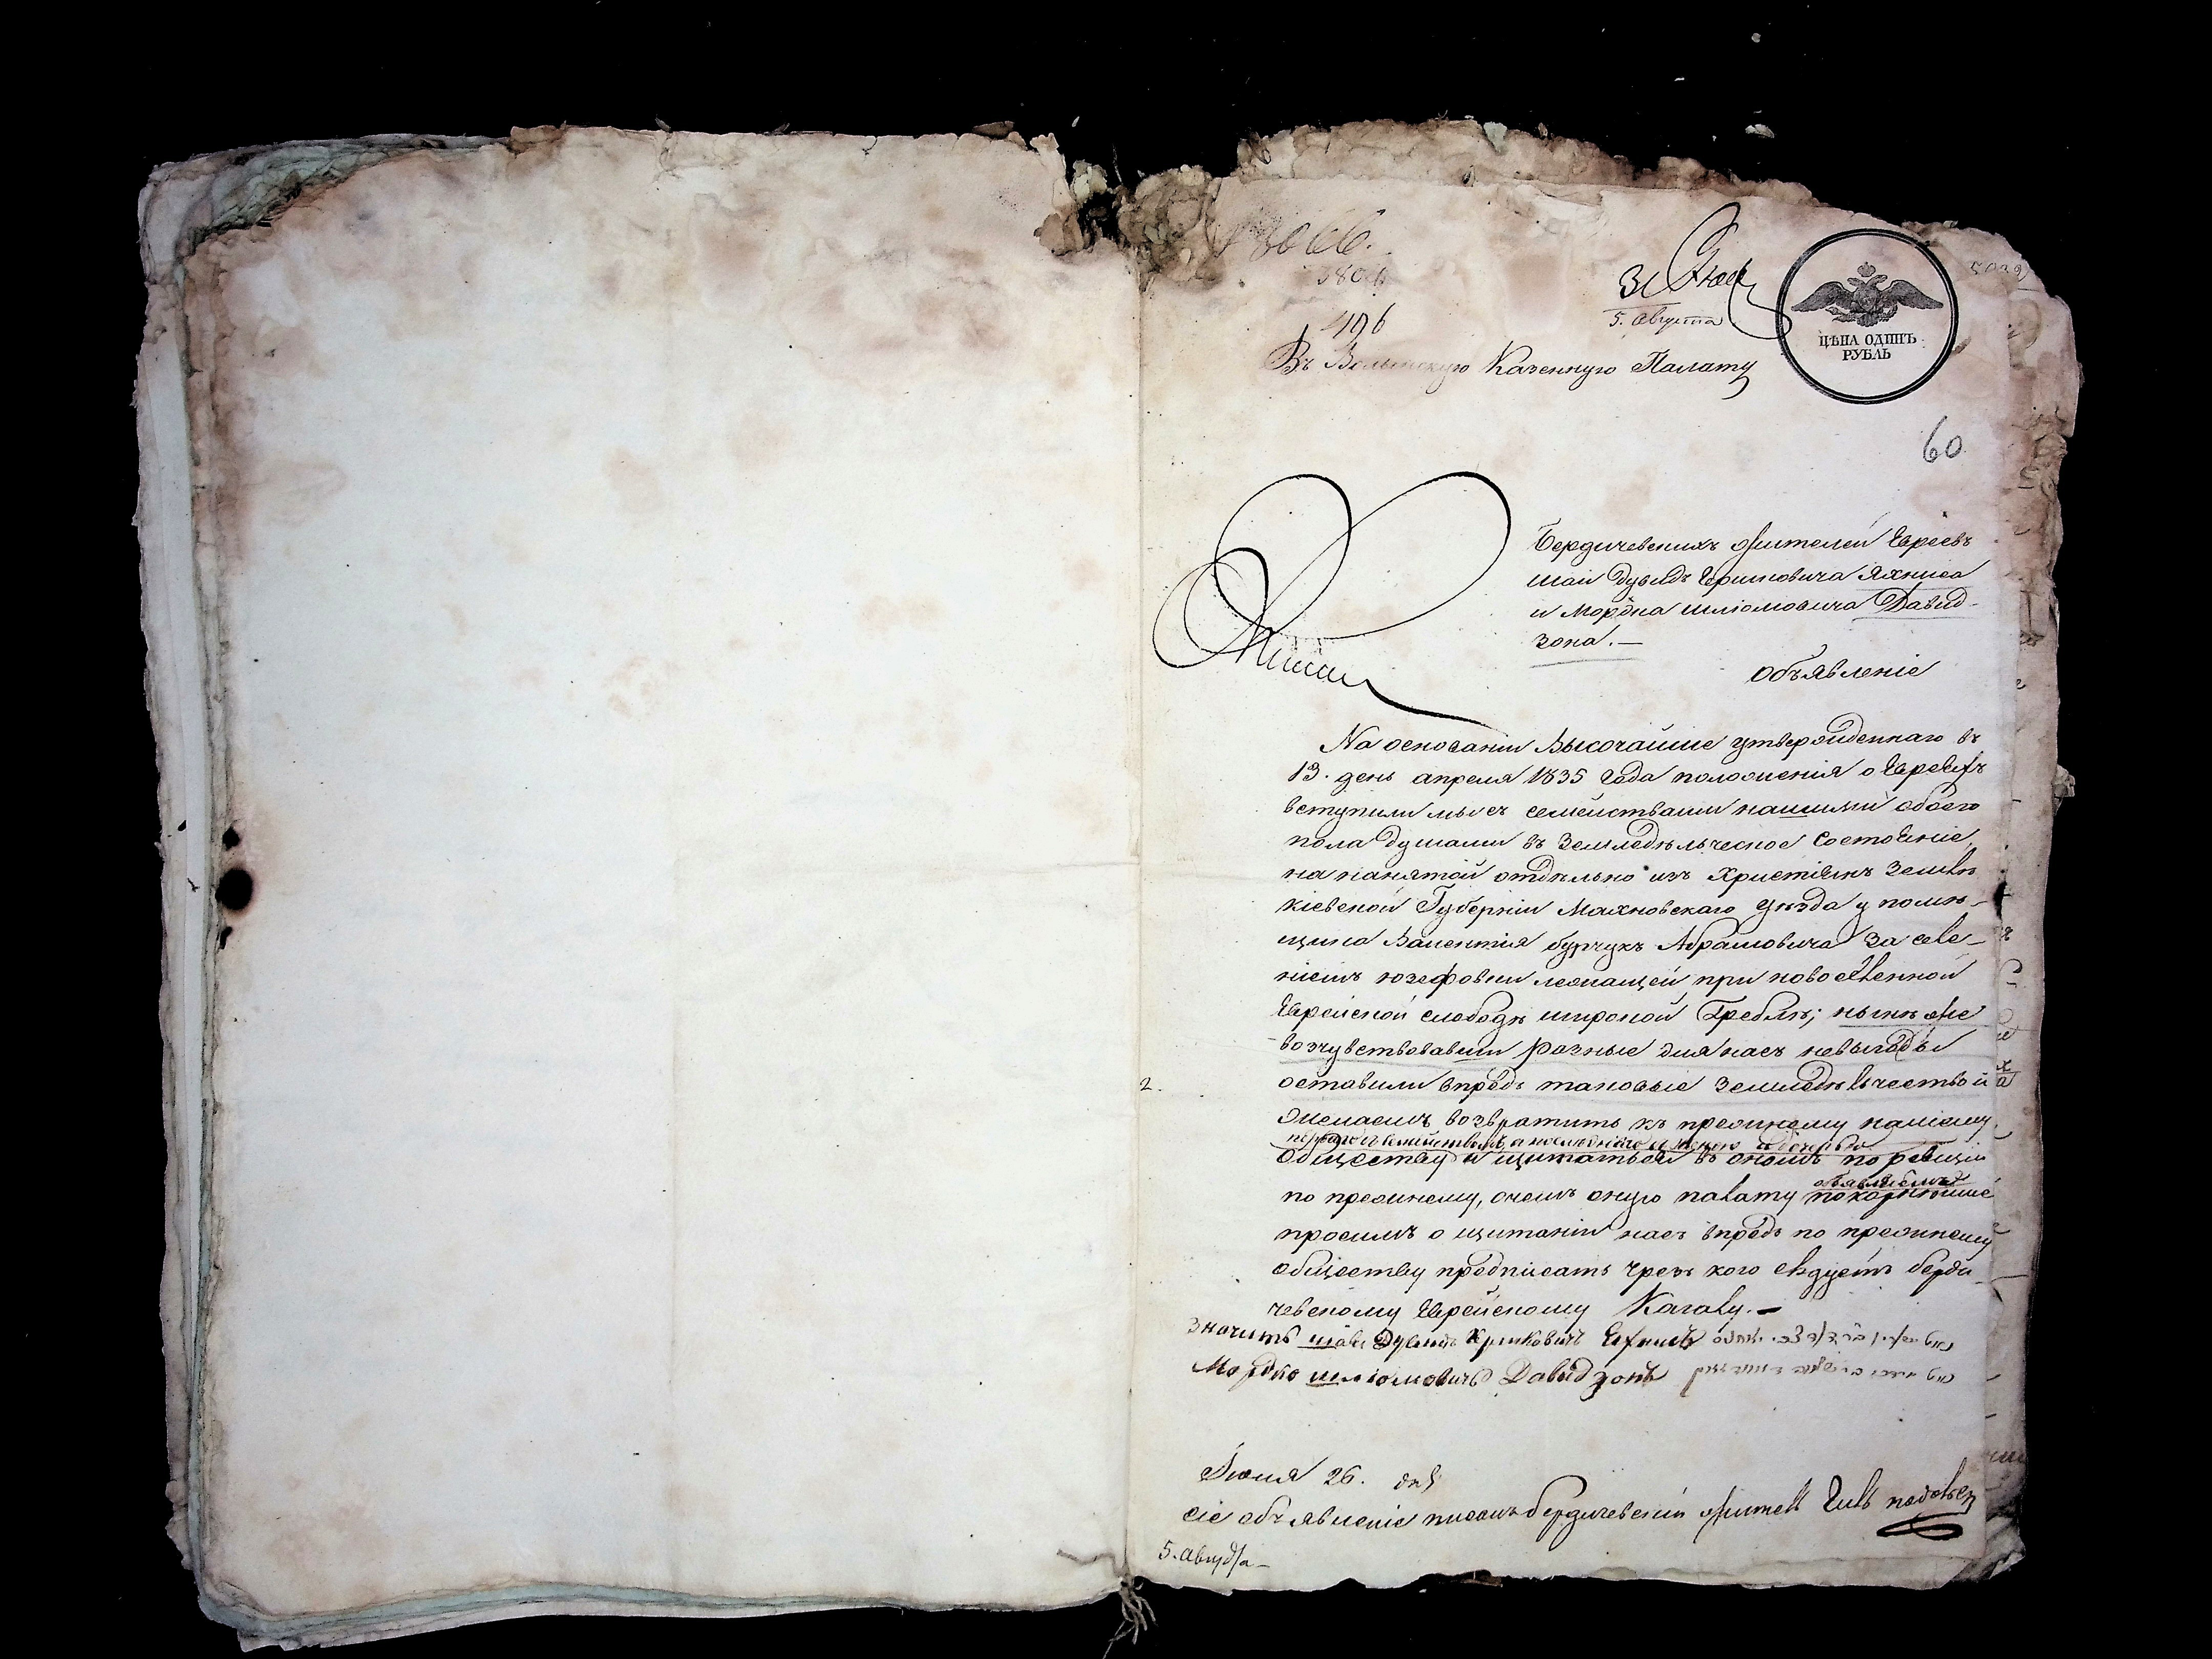 496
31 Июля
5. Августа
ЦѢНА ОДИНЪ
РУБЛЬ
Въ Волынскую Казенную Палату
60
Бердичевскихъ жителей Евреевъ
Шаи Дувидъ Гершковича Яхниса
и Мордка Шліомовича Давид-
зона.—
Объявленіе
На основаніи Высочайше утвержденнаго въ
13. день апреля 1835 года положенія о Евреяхъ
вступили мы съ семействами нашими обоего
пола душами въ земледѣльческое состояніе,
на нанятой отдѣльно изъ Христіянъ землѣ
Кіевской Губерніи Махновскаго уѣзда у помѣ-
щика Абрамовича за селе-
ніемъ Юзефовки лежащей при ново
Еврейской слободѣ широкой Греблѣ; нынѣ же
возчувствовавши разные для насъ невыгоды
2.
оставили впредь таковые земледѣльчество и
желаемъ возвратить къ прежнему нашему
обществу и щитаться въ ономъ по ревизіи
объявляемъ
по прежнему, о чемъ оную палату покорнейше
просимъ о щитаніи насъ впредь по прежнему
обществу предписать чрезъ кого слѣдуетъ Берди
чевскому Еврейскому Кагалу.—
значитъ Шаи Дувидъ Ершковичъ Ехнисъ
Мордко Шліомовичъ Давидзонъ
Іюля 26. дня
сіе объявленіе писалъ бердичевскій житель
5. Августа